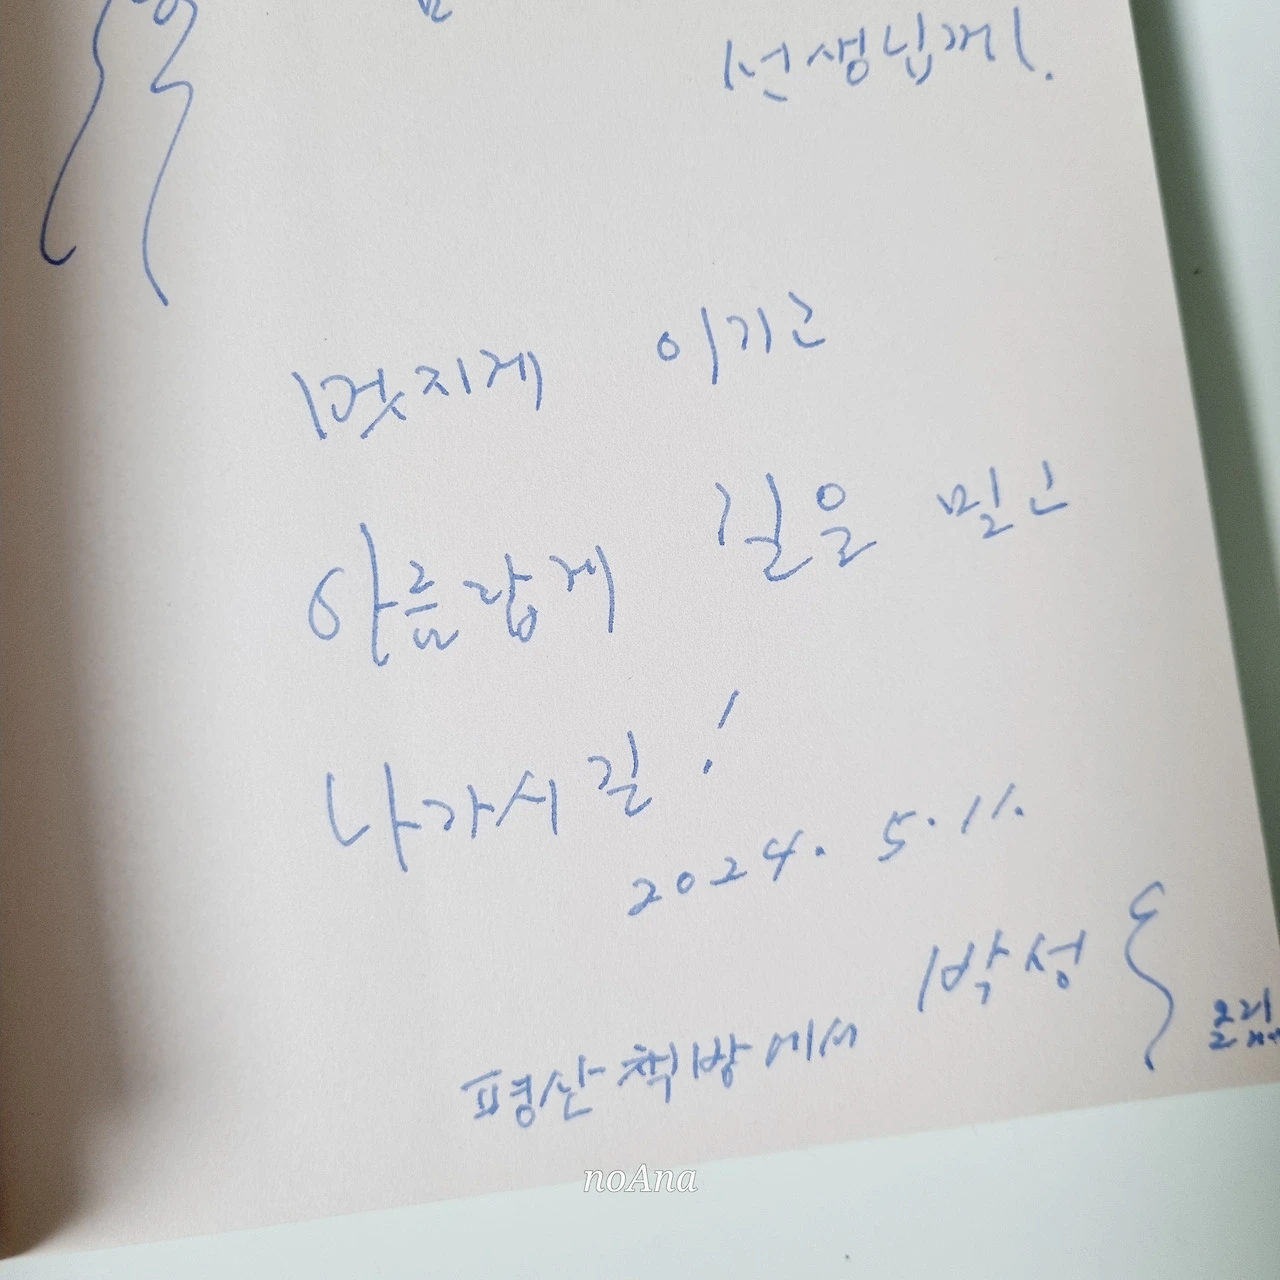 선생님께.
멋지게 이기고
아름답게 길을 밀고
나가시길!
2024. 5. 11.
박성
평산책방에서
noAna